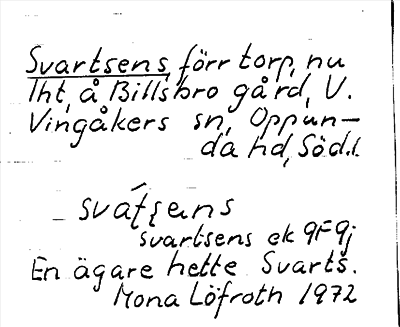 Svartsens, förr torp, nu
lht, å Billsbro gård, V.
Vingåkers sn, Oppun-
da hd, Söd.l.
svat̡sɐns
svartsens ek 9F9j
En ägare hette Svarts.
Mona Löfroth 1972